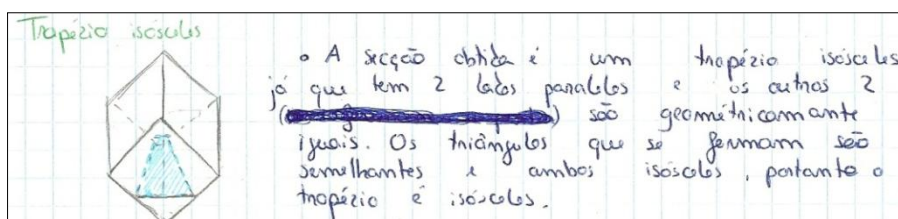 Trapézio isósceles
• A secção obtida é um trapézio isósceles
já que tem 2 lados paralelos e os outros 2
são geométricamante
iguais. Os triângulos que se formam são
semelhantes e ambos isósceles, portanto o
trapézio é isósceles.